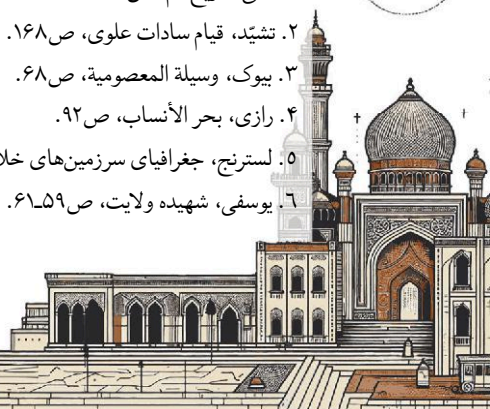 ۲. تشیّد، قیام سادات علوی، ص۱۶۸.
۳. بیوک، وسیلة المعصومیة، ص۶۸.
۴. رازی، بحر الأنساب، ص۹۲.
۵. لسترنج، جغرافیای سرزمین‌های
۶. یوسفی، شهیده ولایت، ص۵۹ـ۶۱.